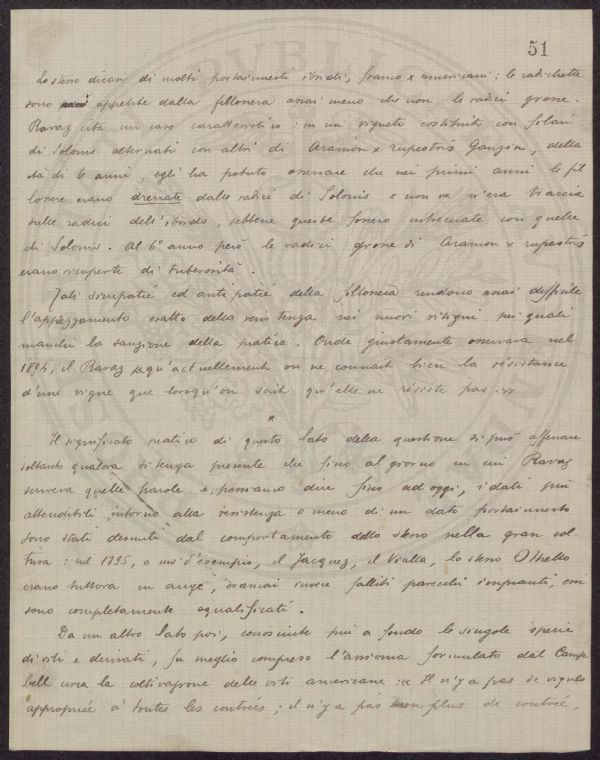 51
Lo stesso dicasi di molti portainnesti ibridi, franco x americani: le radichette
sono appetite dalla fillossera assai meno che non le radici grosse.
Ravaz cita un caso caratteristico: in un vigneto costituito con filari
di Solonis alternati con altri di Aramon x rupestris Ganzin, della
età di 6 anni, egli ha potuto osservare che nei primi anni le fil
lossere erano drenate dalle radici di Solonis e non ve n'era traccia
sulle radici dell'ibrido, sebbene queste fossero intrecciate con quelle
di Solonis. Al 6° anno però le radici grosse di Aramon x rupestris
erano ricoperte di tuberosità.
Tali simpatie ed antipatie della fillossera rendono assai difficile
l'apprezzamento esatto della resistenza nei nuovi vitigni pei quali
manchi la sanzione della pratica. Onde giustamente osservava nel
1894, il Ravaz « qu'actuellement on ne connait bien la résistance
d'une vigne que lorsqu'on sait qu'elle ne résiste pas. »
*
Il significato pratico di questo lato della questione si può afferrare
soltanto qualora si tenga presente che fino al giorno in cui Ravaz
scriveva quelle parole e, possiamo dire fino ad oggi, i dati più
attendibili intorno alla resistenza o meno di un dato portainnesto
sono stati desunti dal comportamento dello stesso nella gran col-
tura: nel 1895, a mo' d'esempio, il Jacquez, il Vialla, lo stesso Othello
erano tuttora in auge, oramai invece falliti parecchi impianti, essi
sono completamente squalificati.
Da un altro lato poi, conosciute più a fondo le singole specie
di viti e derivati, fu meglio compreso l'assioma formulato dal Camp
bell circa la coltivazione delle viti americane: « Il n'y a pas de vignes
appropriée à toutes les contrées; il n'y a pas non plus de contrée,